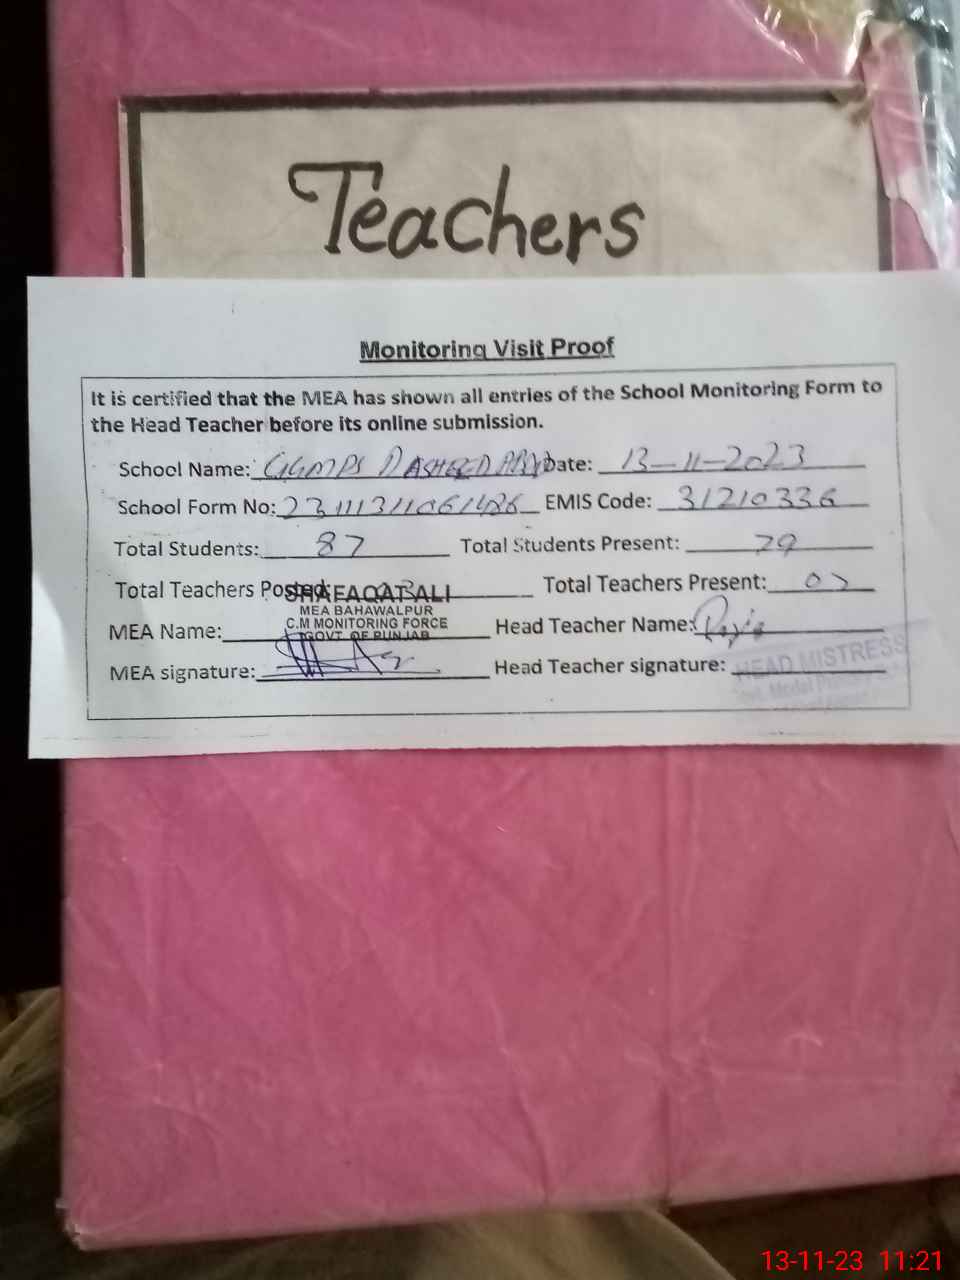 Teachers
Monitoring Visit Proof
It is certified that the MEA has shown all entries of the School Monitoring Form to
the Head Teacher before its online submission.
School Name: GGMPS Date: 13-11-2023
School Form No: EMIS Code: 31210336
Total Students: 87 Total Students Present: 79
Total Teachers Posted: Total Teachers Present:
SHAFAQAT ALI
MEA BAHAWALPUR
C.M MONITORING FORCE
GOVT. OF PUNJAB
MEA Name: Head Teacher Name:
MEA signature: Head Teacher signature:
HEAD MISTRESS
13-11-23 11:21